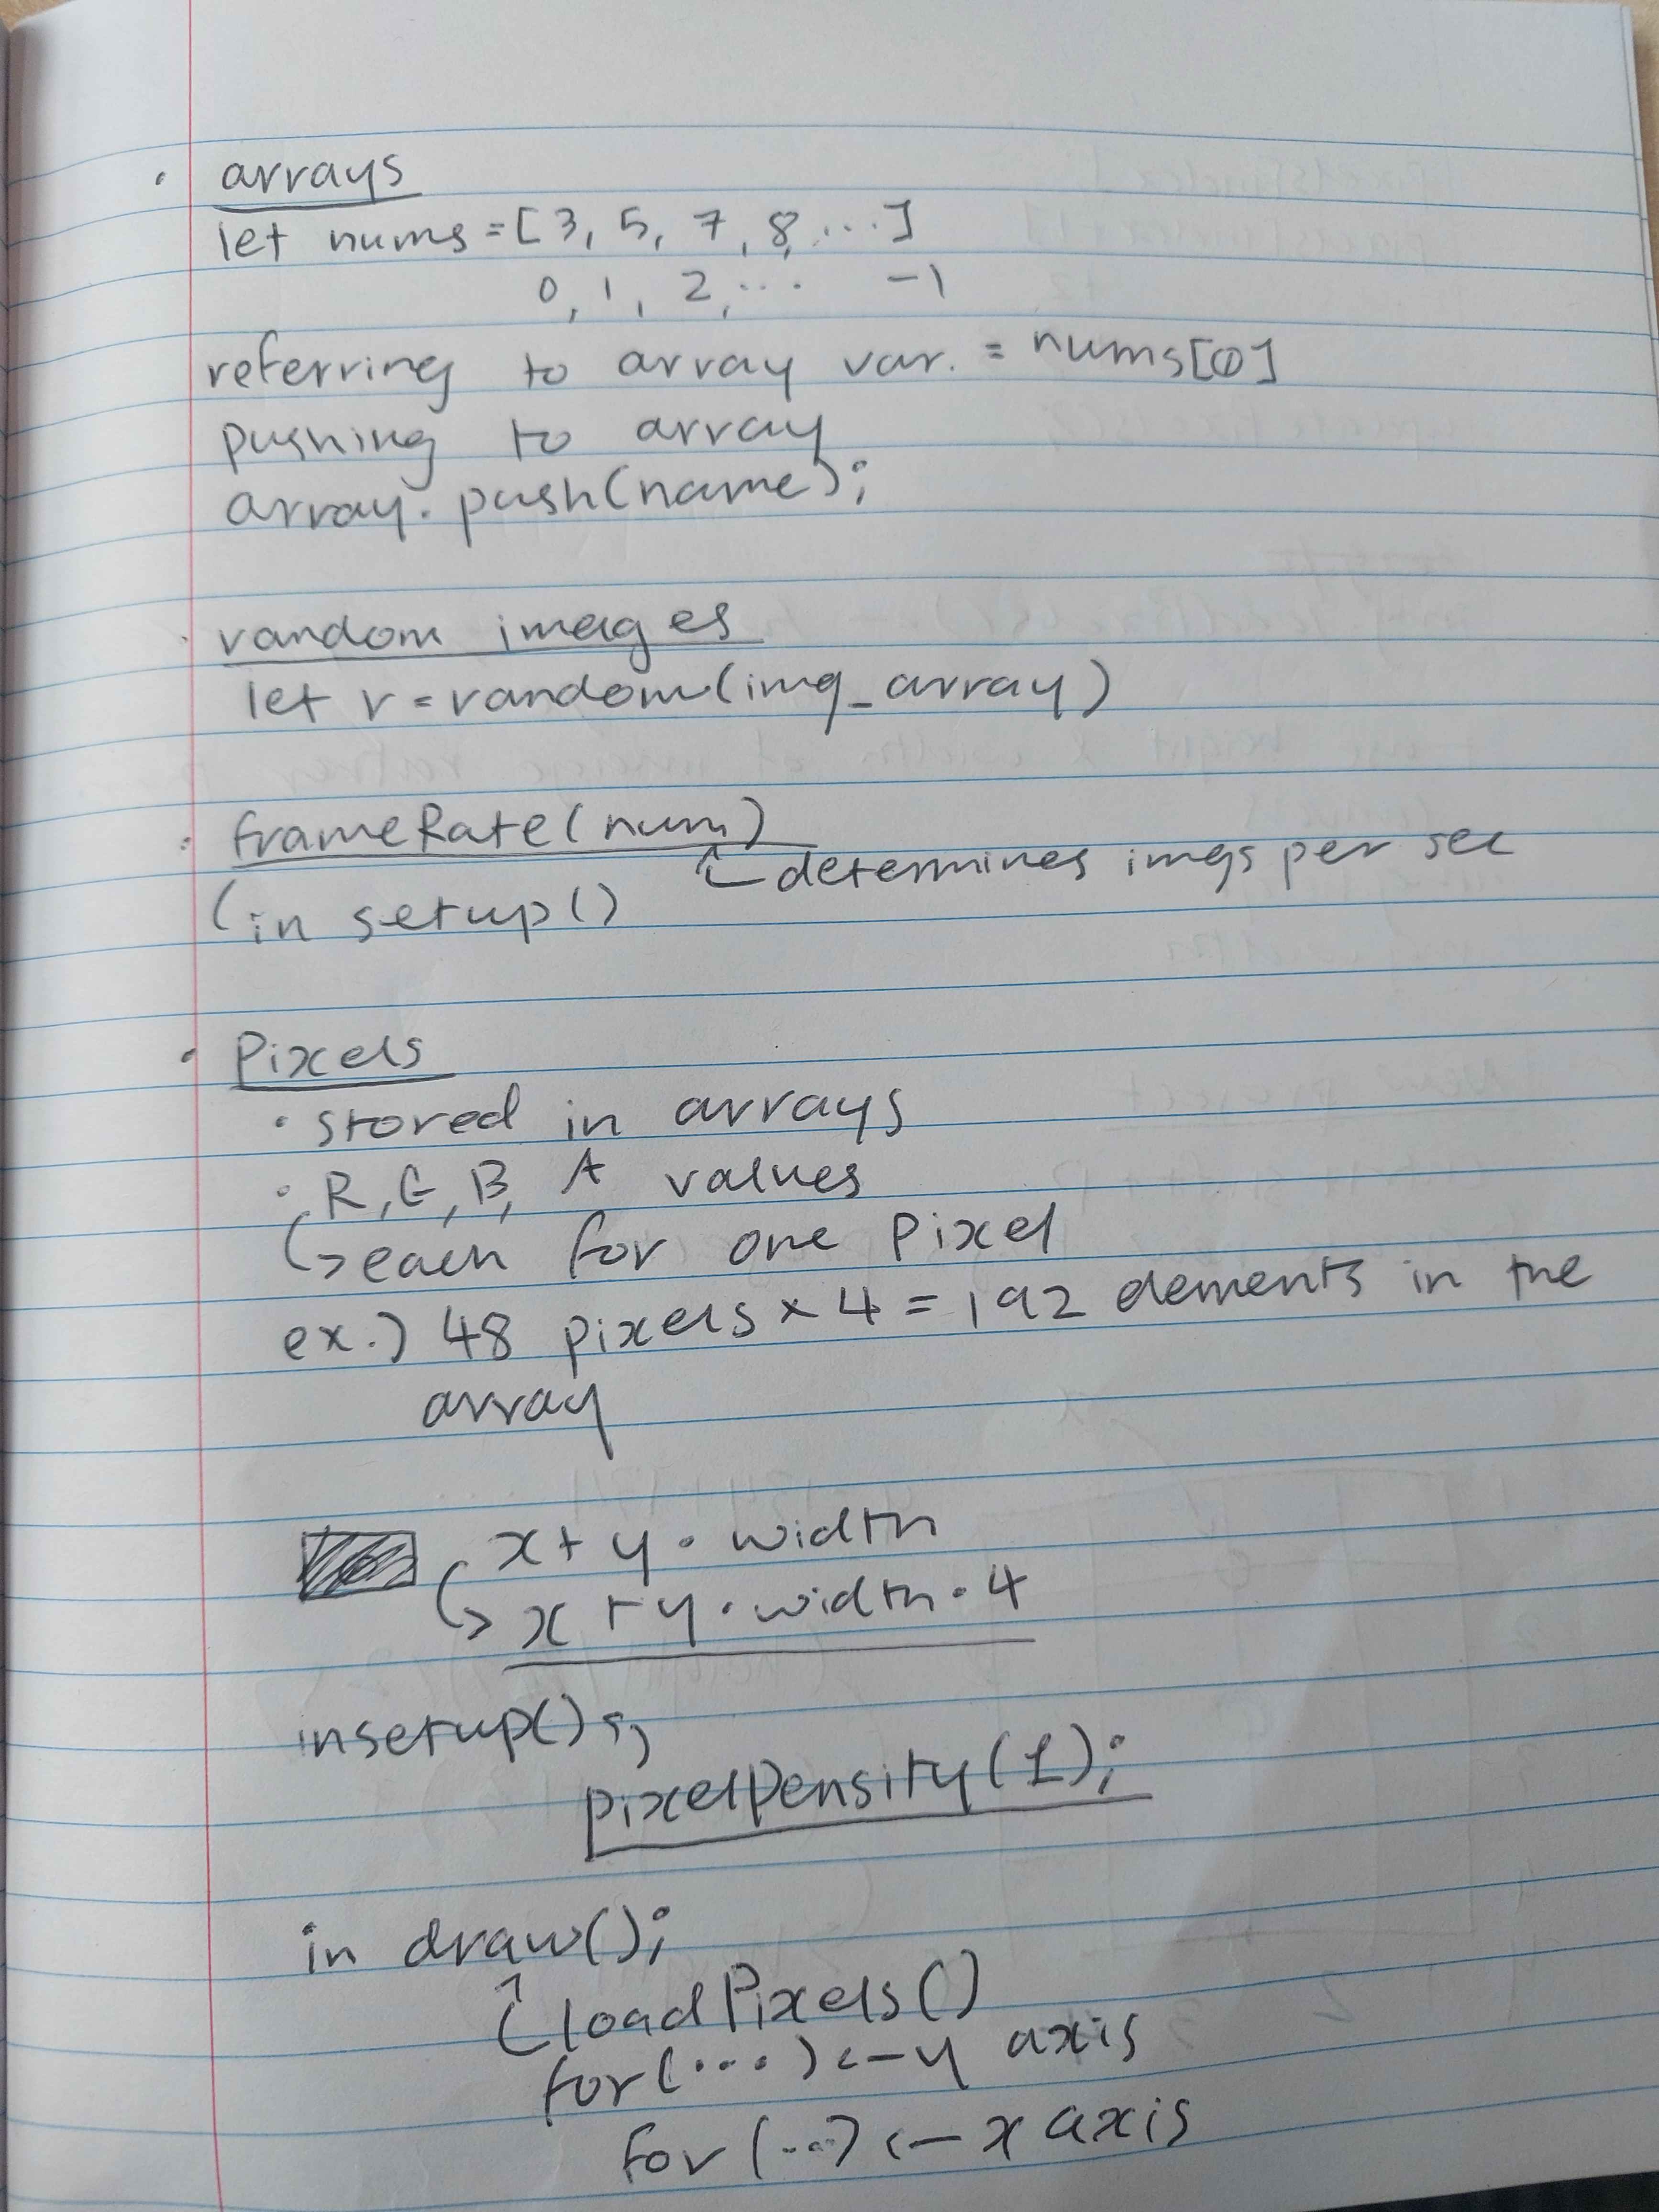 · arrays
let nums = [3, 5, 7, 8, ...]
0, 1, 2, ... -1
referring to array var. = nums[0]
pushing to array
array.push(name);
· random images
let r = random(img_array)
· frameRate(num)
↑ determines imgs per sec
(in setup()
· Pixels
· stored in arrays
· R, G, B, A values
↳ each for one pixel
ex.) 48 pixels × 4 = 192 elements in the
array
x + y · width
↳ x + y · width · 4
in setup();
pixelDensity(1);
in draw();
↑ loadPixels()
for(...) <- y axis
for(...) <- x axis